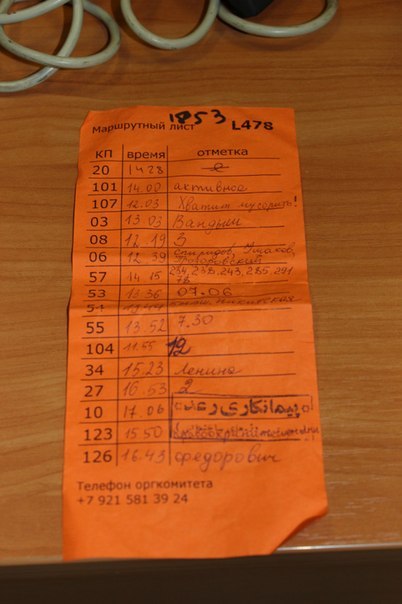 1853
Маршрутный лист L478
КП время отметка
20 14 28
101 14.00 активное
107 12.03 Хватит мусорить!
03 13 03 Вандыш
08 12 19 3
06 12 39 Спиридов, Ушаков,
57 14 15 234, 238, 243, 285, 291
53 13 36 07.06
54
55 13.52 7.30
104 11.55 12
34 15.23 Ленина
27 16.53 2
10 17.06 پیمانکاری
123 15 50
126 16.43 Федорович
Телефон оргкомитета
+7 921 581 39 24